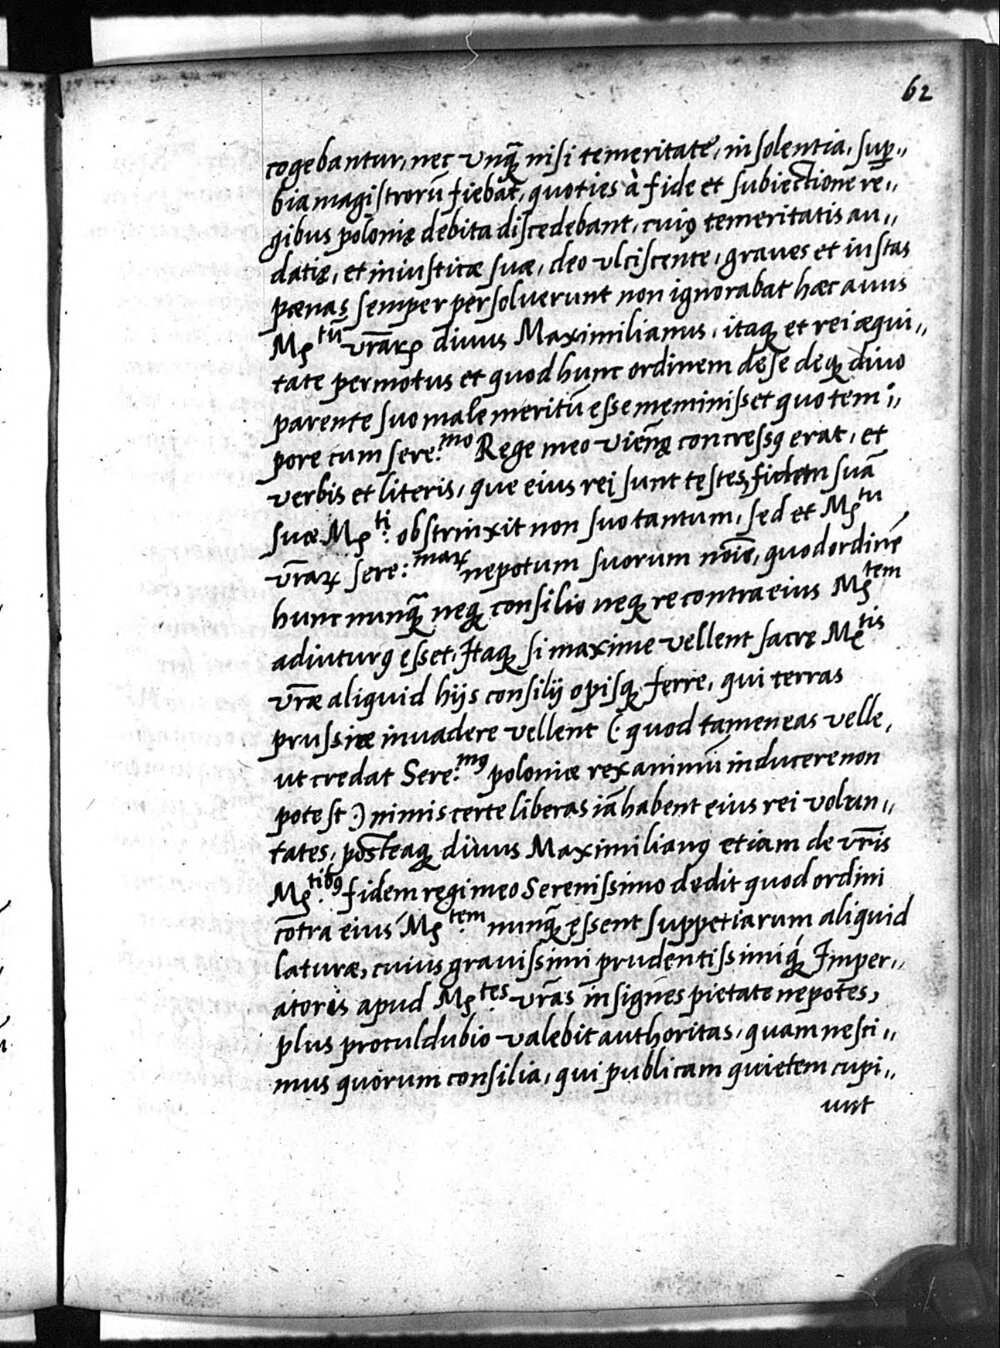 62
cogebantur, nec vnq̃ nisi temeritate, insolentia, sup̲,,
bia magistrorũ fiebat, quoties à fide et subiectione re,,
gibus polonię debita discedebant, cuiꝰ temeritatis au,,
datię, et iniusticæ suæ, deo vlciscente, graues et iustas
pœnas semper persoluerunt non ignorabat hæc auus
Mꝭ^tũ vr̃arꝝ diuus Maximilianus, itaqꝫ et rei æqui,,
tate permotus et quod hunc ordinem de se deqꝫ diuo
parente suo male meritũ esse meminisset quo tem,,
pore cum sere:^mo Rege meo vienę congressꝰ erat, et
verbis et literis, que eius rei sunt testes, fidem suã
suæ Mꝭ^ti: obstrinxit non suo tantum, sed et Mꝭ^tu
vr̃arꝝ sere:^marꝝ nepotum suorum noĩe, quod ordinẽ
hunc nunq̃ neqꝫ consilio neqꝫ re contra eius Mꝭ^tem
adiuturꝰ esset, Itaqꝫ si maxime vellent sacrę Mꝭ^tis
vr̃æ aliquid hijs consilij opisqꝫ ferre, qui terras
prussiæ inuadere vellent (: quod tamen eas velle,
ut credat Sere:^mꝰ poloniæ rex animũ inducere non
potest :) nimis certe liberas iã habent eius rei volun,,
tates, posteaqꝫ diuus Maximilianꝰ etiam de vr̃is
Mꝭ^tibꝰ: fidem regi meo Serenissimo dedit quod ordini
cõtra eius Mꝭ^tem nunq̃ essent suppetiarum aliquid
laturæ, cuius grauissimi prudentissimiqꝫ Imper,,
atoris apud Mꝭ^tes vr̃as insignes pietate nepotes,
plus proculdubio valebit authoritas, quam nesci,,
mus quorum consilia, qui publicam quietem cupi,,
unt